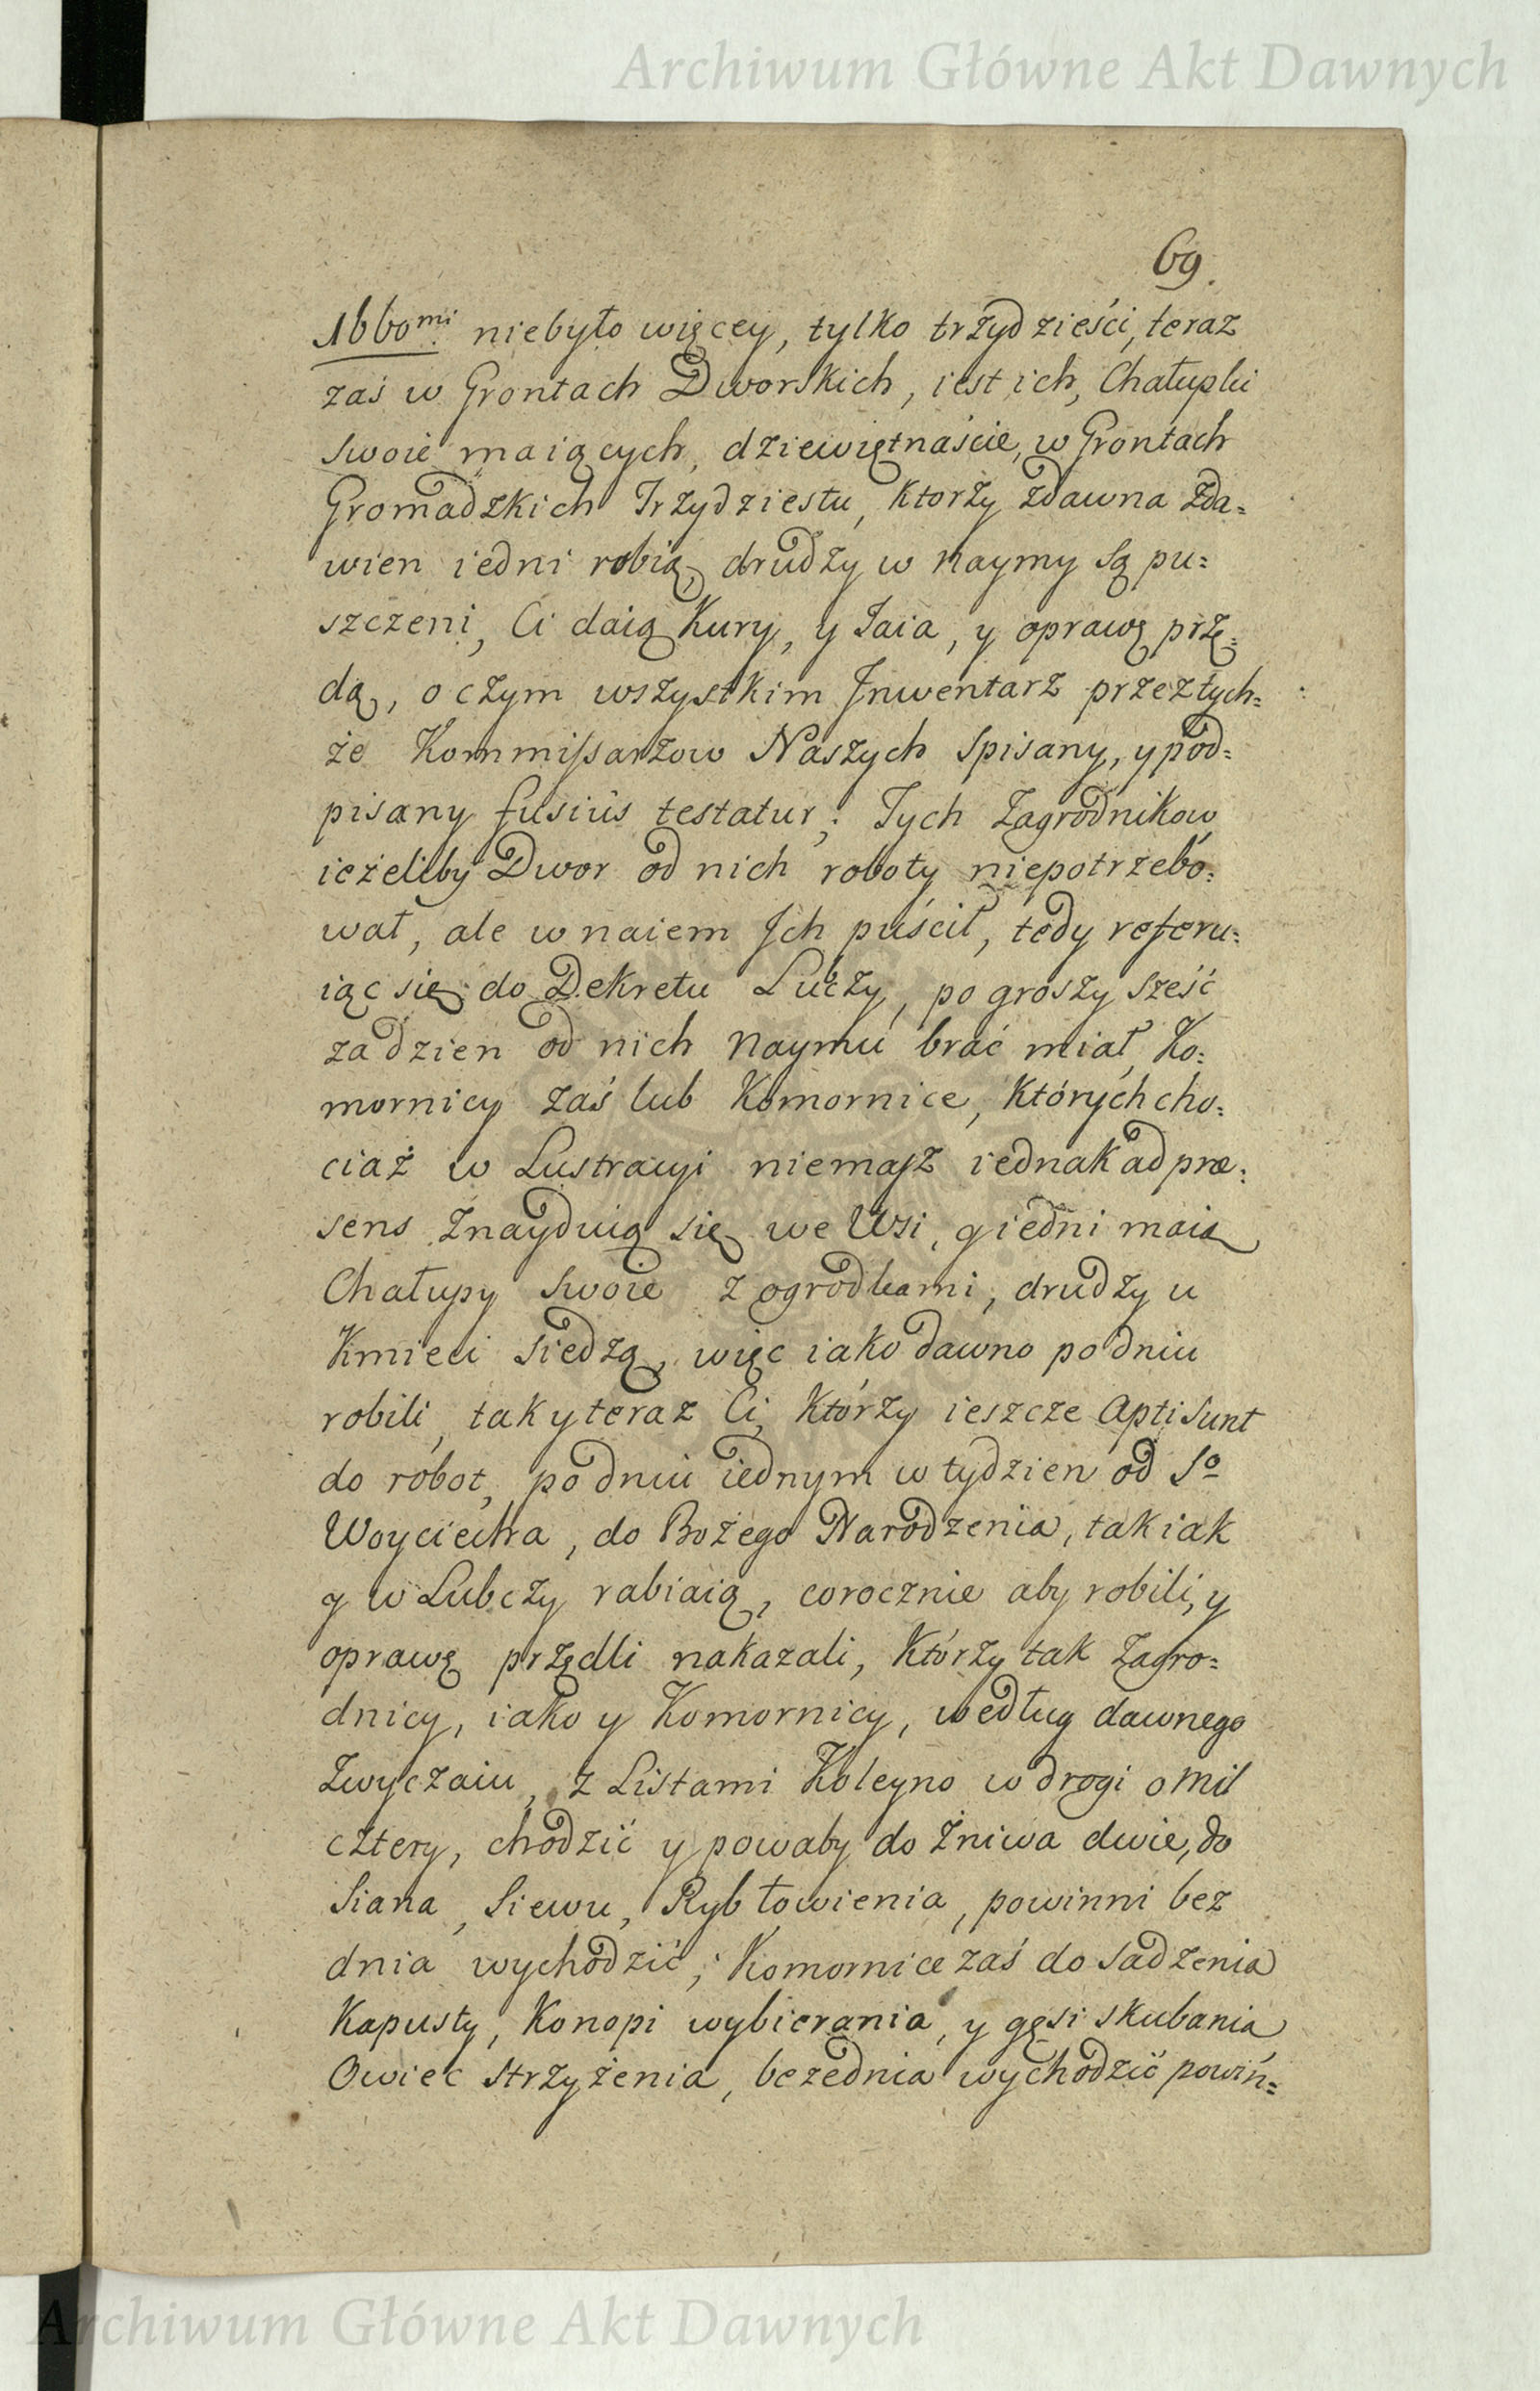 Archiwum Główne Akt Dawnych
69.
1660mi niebyło więcey, tylko trzydzieści, teraz
zaś w Grontach Dworskich, iest ich, Chałupki
swoie maiących, dziewiętnaście, w Grontach
Gromadzkich Trzydziestu, ktorzy zdawna zda=
wien iedni robią, drudzy w naymy są pu=
szczeni, Ci daią Kury, y Jaia, y oprawę przę=
dą, o czym wszystkim Jnwentarz przeztych=
że Kommissarzow Naszych spisany, y pod=
pisany fusius testatur; Tych Zagrodnikow
ieżeliby Dwor od nich roboty niepotrzebo=
wał, ale w naiem Jch puścił, tedy referu=
iąc się do Dekretu Lubczy, po groszy sześć
za dzien od nich naymu brać miał, Ko=
mornicy zaś lub Komornice, których cho=
ciaż w Lustracyi niemasz iednak ad præ=
sens znayduią się we Wsi, y iedni maią
Chałupy swoie z ogrodkami, drudzy u
Kmieci siedzą, więc iako dawno po dniu
robili, tak y teraz Ci, którzy ieszcze apti sunt
do robot, po dniu iednym w tydzien od So
Woyciecha, do Bożego Narodzenia, tak iak
y w Lubczy rabiaią, corocznie aby robili, y
oprawę przędli nakazali, Którzy tak Zagro=
dnicy, iako y Komornicy, według dawnego
Zwyczaiu, z Listami Koleyno w drogi o mil
cztery, chodzić y powaby do żniwa dwie, do
Siana, Siewu, Ryb łowienia, powinni bez
dnia wychodzić; Komornice zaś do sadzenia
Kapusty, Konopi wybierania, y gęsi skubania
Owiec strzyżenia, bezednia wychodzić powin=
Archiwum Główne Akt Dawnych